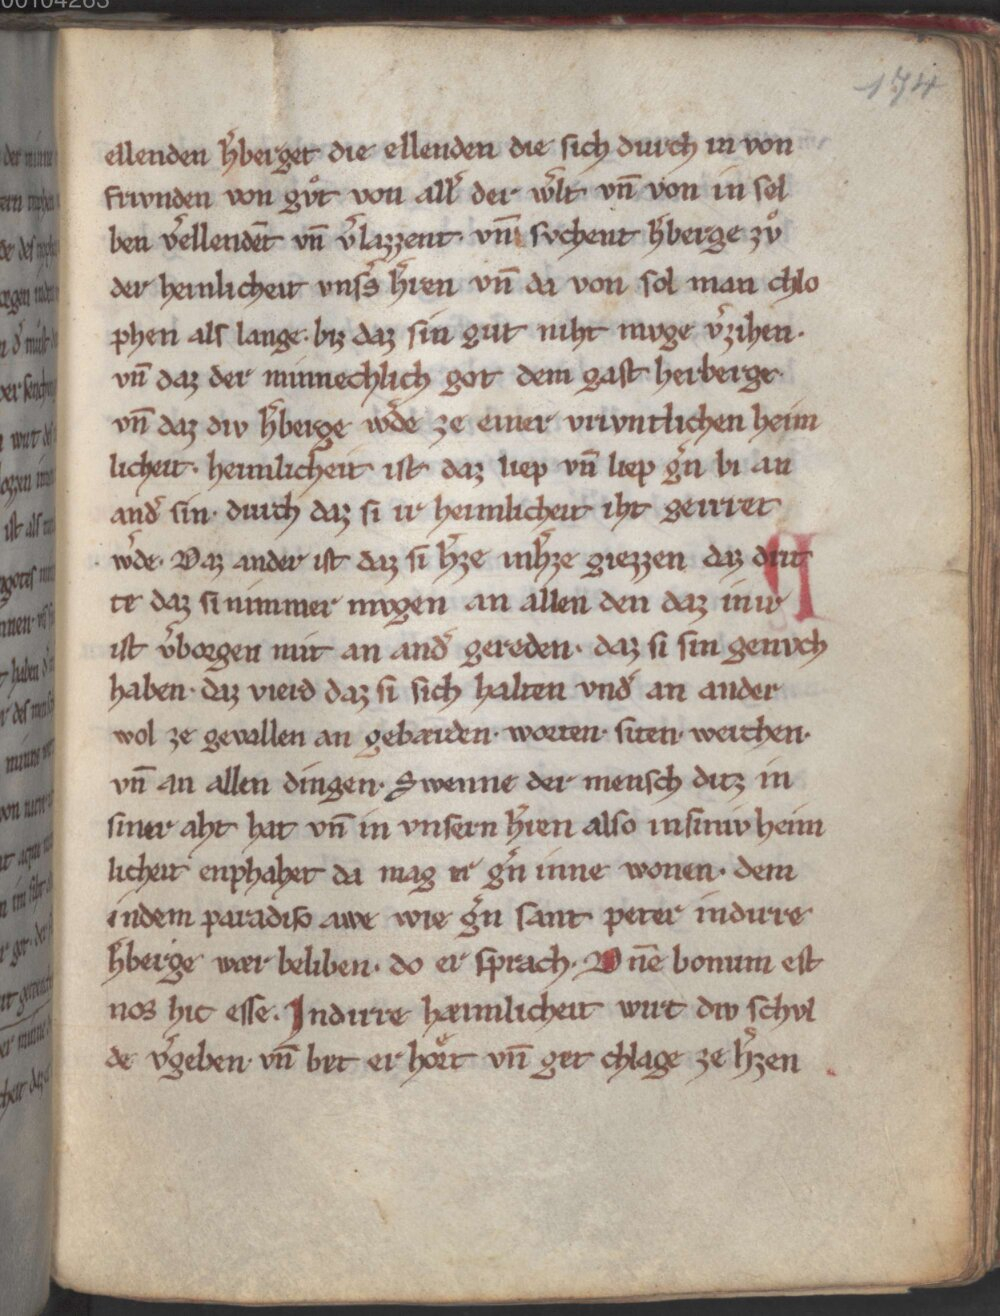 00104263
174
ellenden h̾berget die ellenden die sich durch in von
friunden von gůt von all̾ der w̾lt vn̄ von in sel
ben v̾ellendēt vn̄ v̾lazzent· vn̄ svchent h̾berge zů
der heimlicheit vns̾s h̾ren vn̄ da von sol man chlo
phen als lange· biz daz sin gut niht mvge v̾zihen·
vn̄ daz der minnechlich got dem gast herberge·
vn̄ daz div h̾berge w̾de ze einer vrivntlichen heim
licheit· heimlicheit ist daz liep vn̄ liep g̾n bi an
and̾ sin· durch daz si ir heimlicheit iht geirret
w̾de· Daz ander ist daz si h̾ze in h̾ze giezzen daz dut
te daz si nimmer mvgen an allen den daz in ir
ist v̾borgen mit an and̾ gereden· daz si sin genvch
haben· daz vierd daz si sich halten vnd̾ an ander
wol ze gevallen an gebærden· worten· siten· werchen·
vn̄ an allen dingen· Swenne der mensch ditz in
siner aht hat vn̄ in vnsern h̾ren also in siniv heim
licheit enphahet da mag er g̾n inne wonen· dem
in dem paradiso awe wie g̾n sant peter in dirre
h̾berge wær beliben· do er sprach· Dn̄e bonum est
nos hic esse· In dirre hæimlicheit wirt div schvl
de v̾geben· vn̄ bet er hört vn̄ get chlage ze h̾zen